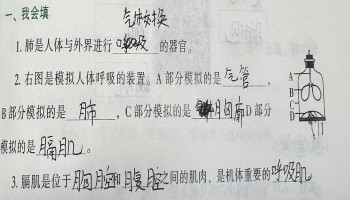 一、我会填
气体交换
1. 肺是人体与外界进行 呼吸 的器官。
2. 右图是模拟人体呼吸的装置。A 部分模拟的是 气管,
B 部分模拟的是 肺 , C 部分模拟的是 胸廓 D 部分
模拟的是 膈肌 。
3. 膈肌是位于 胸腔 和 腹腔 之间的肌肉,是机体重要的 呼吸肌
A
B
C
D